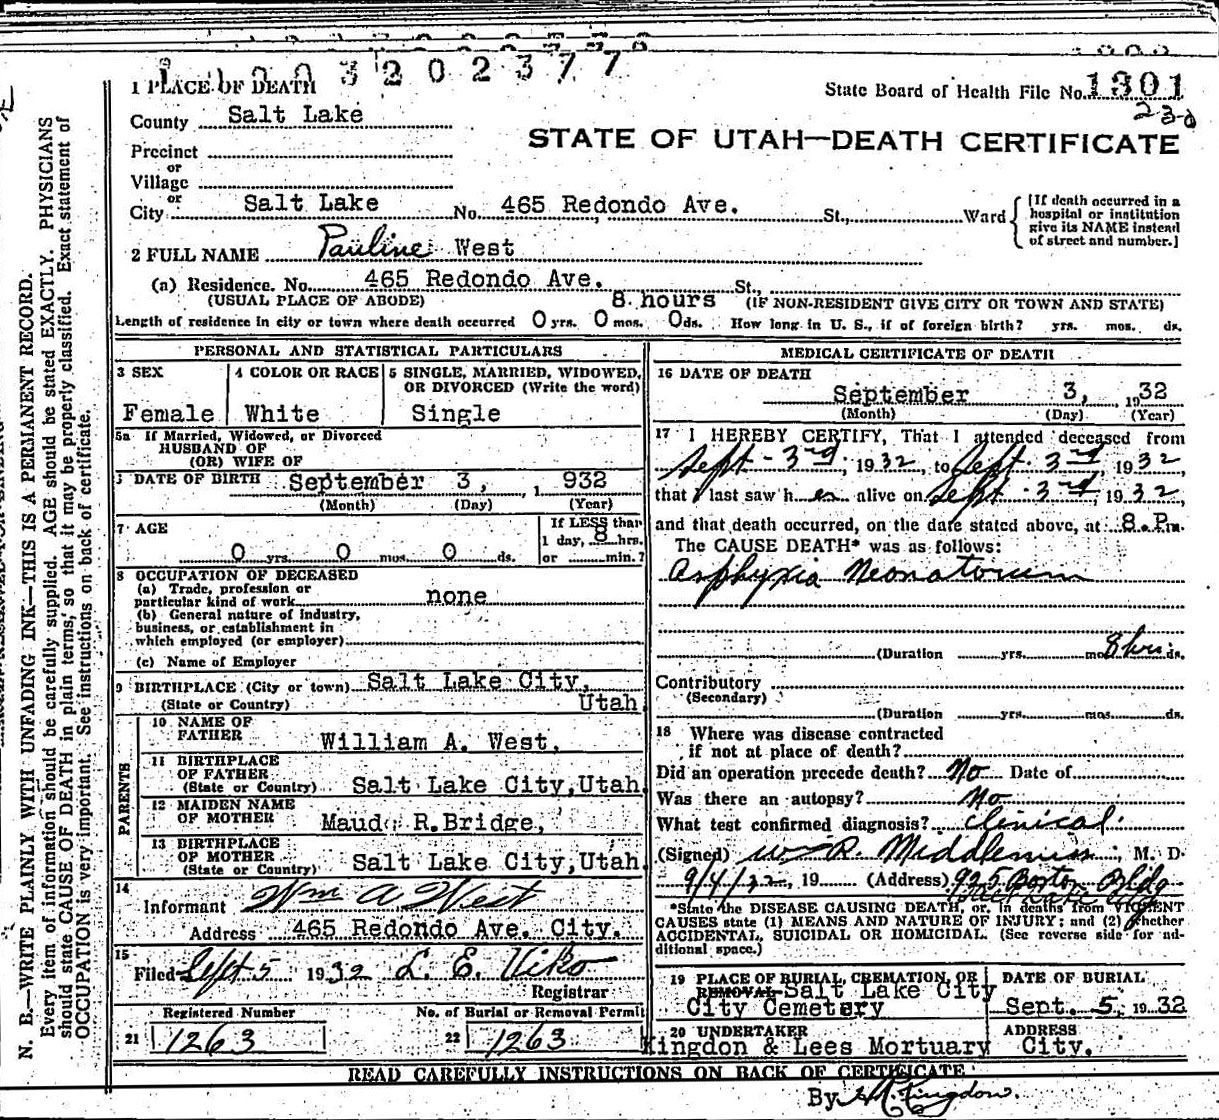 1 0 0 3 2 0 2 3 7 7
1 PLACE OF DEATH
State Board of Health File No. 1301
230
County Salt Lake
STATE OF UTAH—DEATH CERTIFICATE
Precinct
or
Village
or
City Salt Lake No. 465 Redondo Ave. St., Ward
[If death occurred in a
hospital or institution
give its NAME instead
of street and number.]
2 FULL NAME Pauline West
(a) Residence. No. 465 Redondo Ave. St.,
(USUAL PLACE OF ABODE) 8 hours (IF NON-RESIDENT GIVE CITY OR TOWN AND STATE)
Length of residence in city or town where death occurred 0 yrs. 0 mos. 0 ds. How long in U. S., if of foreign birth? yrs. mos. ds.
PERSONAL AND STATISTICAL PARTICULARS
3 SEX
Female
4 COLOR OR RACE
White
5 SINGLE, MARRIED, WIDOWED,
OR DIVORCED (Write the word)
Single
5a If Married, Widowed, or Divorced
HUSBAND OF
(OR) WIFE OF
DATE OF BIRTH September 3, 1 932
(Month) (Day) (Year)
7 AGE
0 yrs. 0 mos. 0 ds.
If LESS than
1 day, 8 hrs.
or min.?
8 OCCUPATION OF DECEASED
(a) Trade, profession or
particular kind of work none
(b) General nature of industry,
business, or establishment in
which employed (or employer)
(c) Name of Employer
9 BIRTHPLACE (City or town) Salt Lake City,
(State or Country) Utah
PARENTS
10 NAME OF
FATHER William A. West,
11 BIRTHPLACE
OF FATHER
(State or Country) Salt Lake City, Utah.
12 MAIDEN NAME
OF MOTHER Maud R. Bridge,
13 BIRTHPLACE
OF MOTHER
(State or Country) Salt Lake City, Utah.
14
Informant Wm A West
Address 465 Redondo Ave. City.
15
Filed Sept 5 1932 L. E. Viko
Registrar
Registered Number
21 1263
No. of Burial or Removal Permit
22 1263
MEDICAL CERTIFICATE OF DEATH
16 DATE OF DEATH
September 3, 1932
(Month) (Day) (Year)
17 I HEREBY CERTIFY, That I attended deceased from
Sept - 3rd, 1932, to Sept. 3rd 1932
that I last saw h er alive on Sept. 3rd, 1932,
and that death occurred, on the date stated above, at 8. P.m.
The CAUSE DEATH* was as follows:
Asphyxia Neonatorum
(Duration yrs. mos. 8 hrs. ds.
Contributory
(Secondary)
(Duration yrs. mos. ds.
18 Where was disease contracted
if not at place of death?
Did an operation precede death? No Date of
Was there an autopsy? No
What test confirmed diagnosis? Clinical
(Signed) W R. Middlemiss, M. D.
9/4/32, 19 (Address) 925 Boston Bldg
*State the DISEASE CAUSING DEATH, or, in deaths from VIOLENT
CAUSES state (1) MEANS AND NATURE OF INJURY; and (2) whether
ACCIDENTAL, SUICIDAL OR HOMICIDAL. (See reverse side for ad-
ditional space.)
19 PLACE OF BURIAL, CREMATION, OR
REMOVAL Salt Lake City
City Cemetery
DATE OF BURIAL
Sept. 5 1932
20 UNDERTAKER
Kingdon & Lees Mortuary
ADDRESS
City.
READ CAREFULLY INSTRUCTIONS ON BACK OF CERTIFICATE
By Kingdon.
N. B.—WRITE PLAINLY WITH UNFADING INK—THIS IS A PERMANENT RECORD.
Every item of information should be carefully supplied. AGE should be stated EXACTLY. PHYSICIANS
should state CAUSE OF DEATH in plain terms, so that it may be properly classified. Exact statement of
OCCUPATION is very important. See instructions on back of certificate.